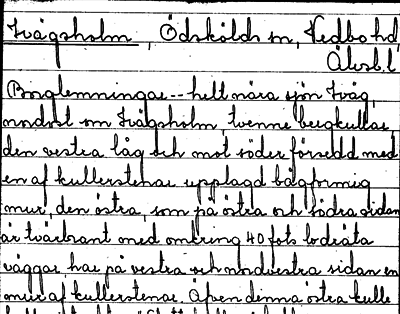 Ivägsholm, Ödskölds sn, Vedbo hd,
Älvsb. l.
Borglemningar -- helt nära sjön Iväg,
nordost om Ivägsholm, tvenne bergkullar,
den vestra låg och mot söder försedd med
en af kullerstenar upplagd bågformig
mur, den östra, som på östra och södra sidan
är tvärbrant med omkring 40 fots lodräta
väggar, har på vestra och nordvestra sidan en
mur af kullerstenar. Äfven denna östra kulle